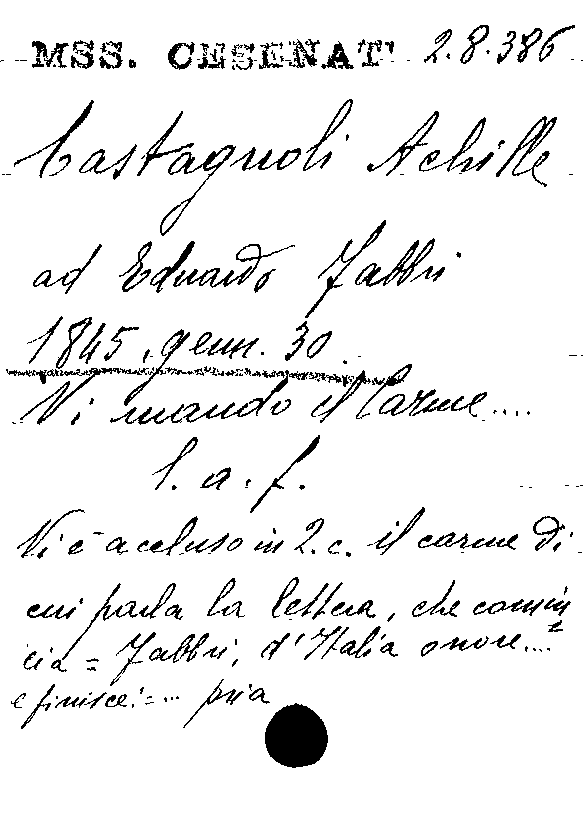 MSS. CESENAT 2.8.386
Castagnoli Achille
ad Eduardo Fabbri
1845, genn. 30.
Vi mando il Carme....
l. a. f.
Vi è accluso in 2. c. il carme di
cui parla la lettera, che comin=
cia = Fabbri, d'Italia onore....
e finisce: = ... pria